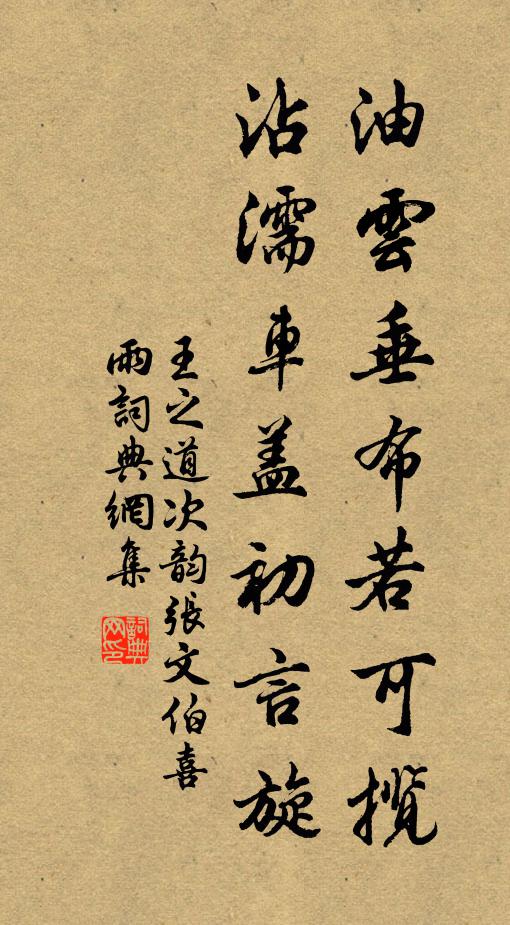 油雲垂布若可攬
沾濡車盖初言旋
王之道次韵張文伯喜
雨詞典網集
詞典
网印